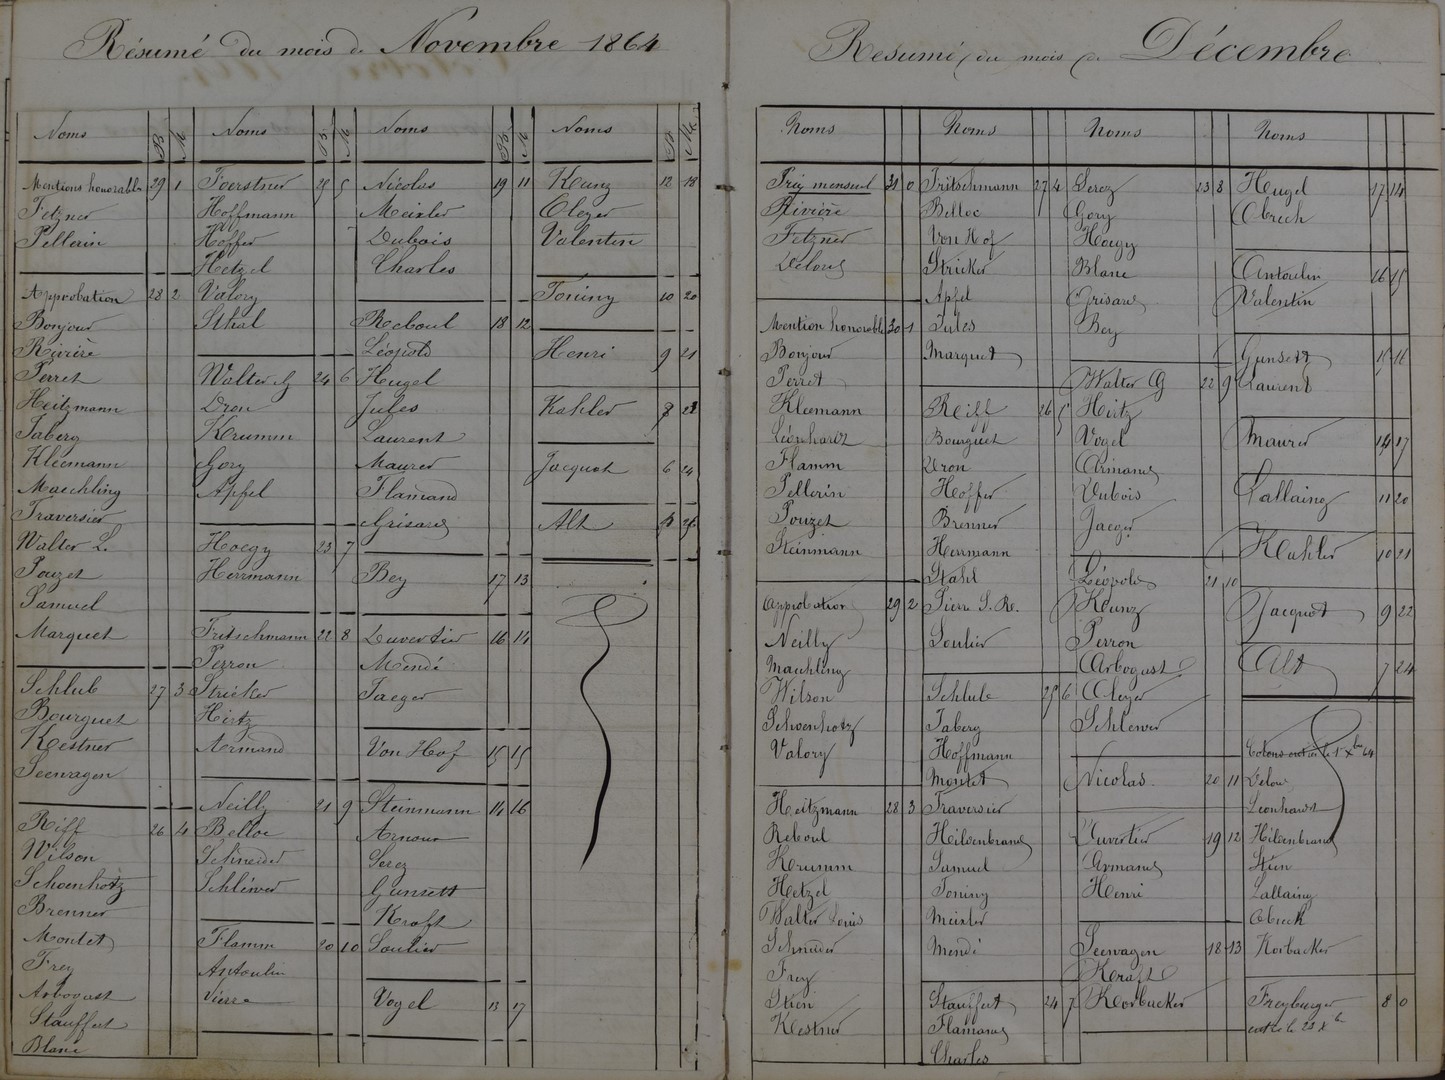 Résumé du mois de Novembre 1864
Noms B M
Mentions honorables 29 1
Fetzner
Pellerin
Approbation 28 2
Bonjour
Rivière
Perret
Heitzmann
Taberg
Kleemann
Maechling
Traversier
Walter L.
Pouzet
Samuel
Marquet
Schlub 27 3
Bourguet
Kestner
Seewagen
Riff 26 4
Wilson
Schoenhotz
Brenner
Montet
Frey
Arbogast
Stauffert
Blanc
Noms B. M
Foerstner 25 5
Hoffmann
Hoffer
Hetzel
Valory
Sthal
Walter G 24 6
Dron
Krumm
Gory
Apfel
Hoegy 23 7
Herrmann
Fritschmann 22 8
Perron
Stricker
Hirtz
Armand
Neilly 21 9
Belloc
Schneider
Schléwer
Flamm 20 10
Antoulin
Pierre
Noms B. M
Nicolas 19 11
Meixler
Dubois
Charles
Reboul 18 12
Léopold
Hugel
Jules
Laurent
Maurer
Flamand
Grisard
Bey 17 13
Duvertier 16 14
Mendé
Jaeger
Von Hof 15 15
Steinmann 14 16
Arnour
Serez
Gunsett
Kraft
Soulier
Vogel 13 17
Noms B M.
Kunz 12 18
Cleyer
Valentin
Toniny 10 20
Henri 9 21
Kahler 8 22
Jacquot 6 24
Alt
Résumé du mois de Décembre
Noms
Prix mensuel 31 0
Rivière
Fetzner
Delord
Mention honorable 30 1
Bonjour
Perret
Kleemann
Léonhartz
Flamm
Pellerin
Pouzet
Steinmann
Approbation 29 2
Neilly
Maechling
Wilson
Schoenhotz
Valory
Heitzmann 28 3
Reboul
Krumm
Hetzel
Walter Louis
Schneider
Frey
Stien
Kestner
Noms
Fritschmann 27 4
Belloc
Von Hof
Stricker
Apfel
Jules
Marquet
Reiff 26 5
Bourguet
Dron
Hoffer
Brenner
Herrmann
Stahl
Pierre S. R.
Soulier
Schlub 25 6
Taberg
Hoffmann
Montet
Traversier
Heildenbrand
Samuel
Toniny
Meixler
Mendé
Stauffert 24 7
Flamand
Charles
Noms
Serez 23 8
Gory
Hoegy
Blanc
Grisard
Bey
Walter G 22 9
Hirtz
Vogel
Armand
Dubois
Jaeger
Léopold 21 10
Kunz
Perron
Arbogast
Cleyer
Schlewer
Nicolas. 20 11
Duvertier 19 12
Armand
Henri
Seewagen 18 13
Kraft
Korbacker
Noms
Hugel 17 14
Obrech
Antoulin 16 15
Valentin
Gunsett 15 16
Laurent
Maurer 14 17
Lallaing 11 20
Kahler 10 21
Jacquot 9 22
Alt 7 24
entré le 1er Xbre 64
Delord
Leonhardt
Hildenbrand
Stien
Lallaing
Obrech
Korbacker
Freyburger 8 0
entré le 23 Xbre